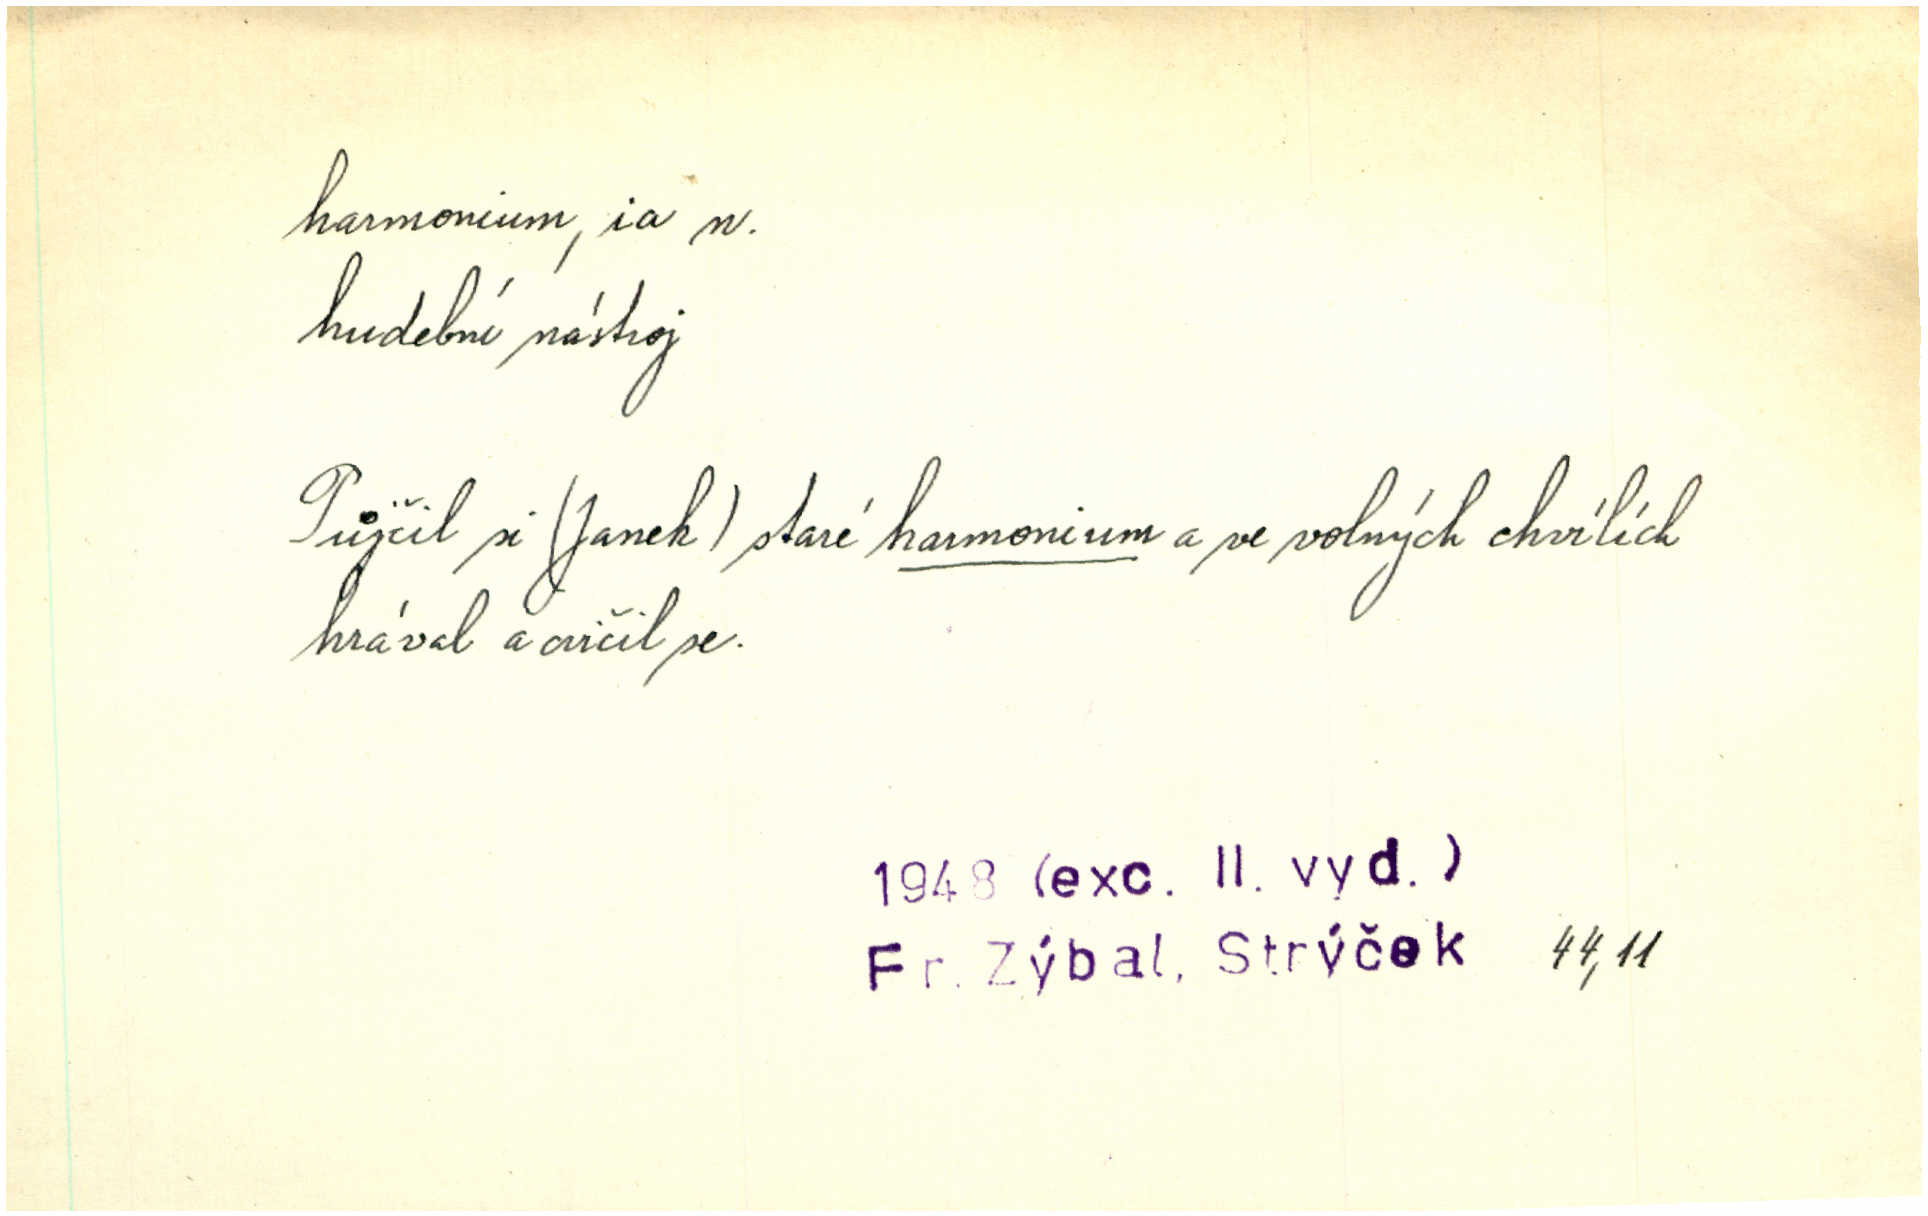 harmonium, ia n.
hudební nástroj
Půjčil si (Janek) staré harmonium a ve volných chvílích
hrával a cvičil se.
1948 (exc. II. vyd.)
Fr. Zýbal, Strýček 44,11